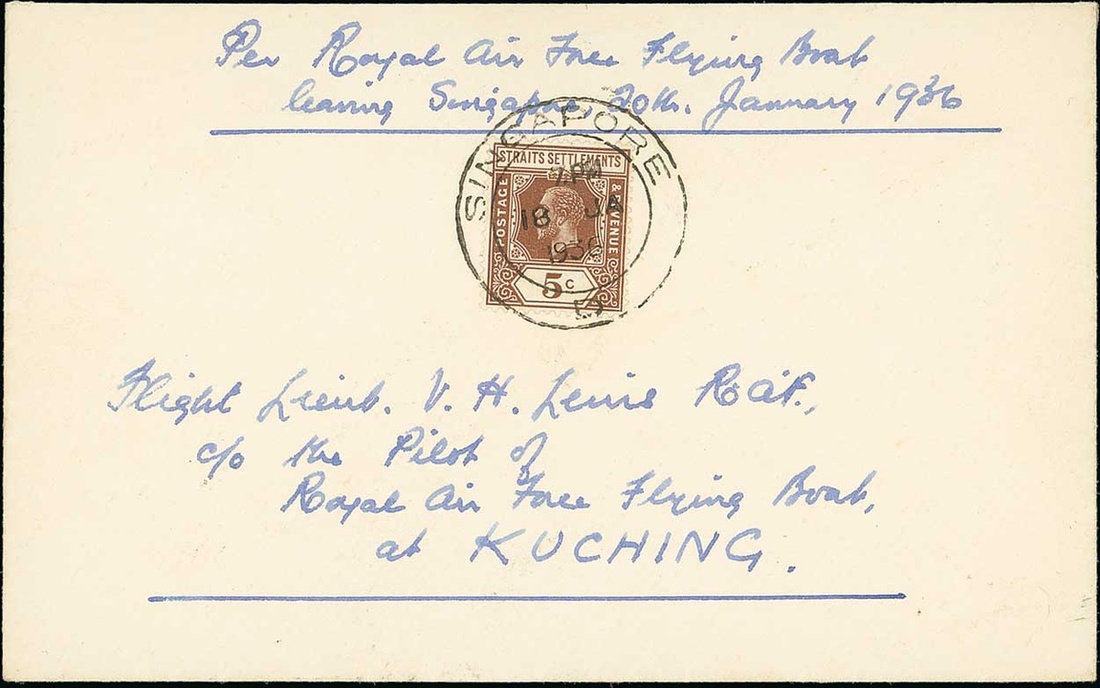 Per Royal Air Force Flying Boat
leaving Singapore, 20th. January 1936
SINGAPORE
STRAITS SETTLEMENTS
POSTAGE & REVENUE
7 PM
18 JA
1936
5c
Flight Lieut. V. H. Lewis R.A.F.,
c/o the Pilot of
Royal Air Force Flying Boat,
at KUCHING.